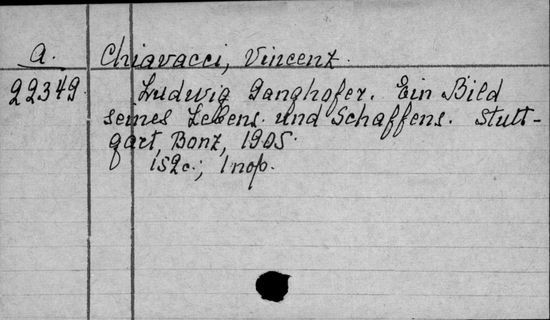 a. Chiavacci, Vincenz.
22349. Ludwig Ganghofer. Ein Bild
seines Lebens und Schaffens. Stutt-
gart, Bonz, 1905.
152c.; 1 nop.